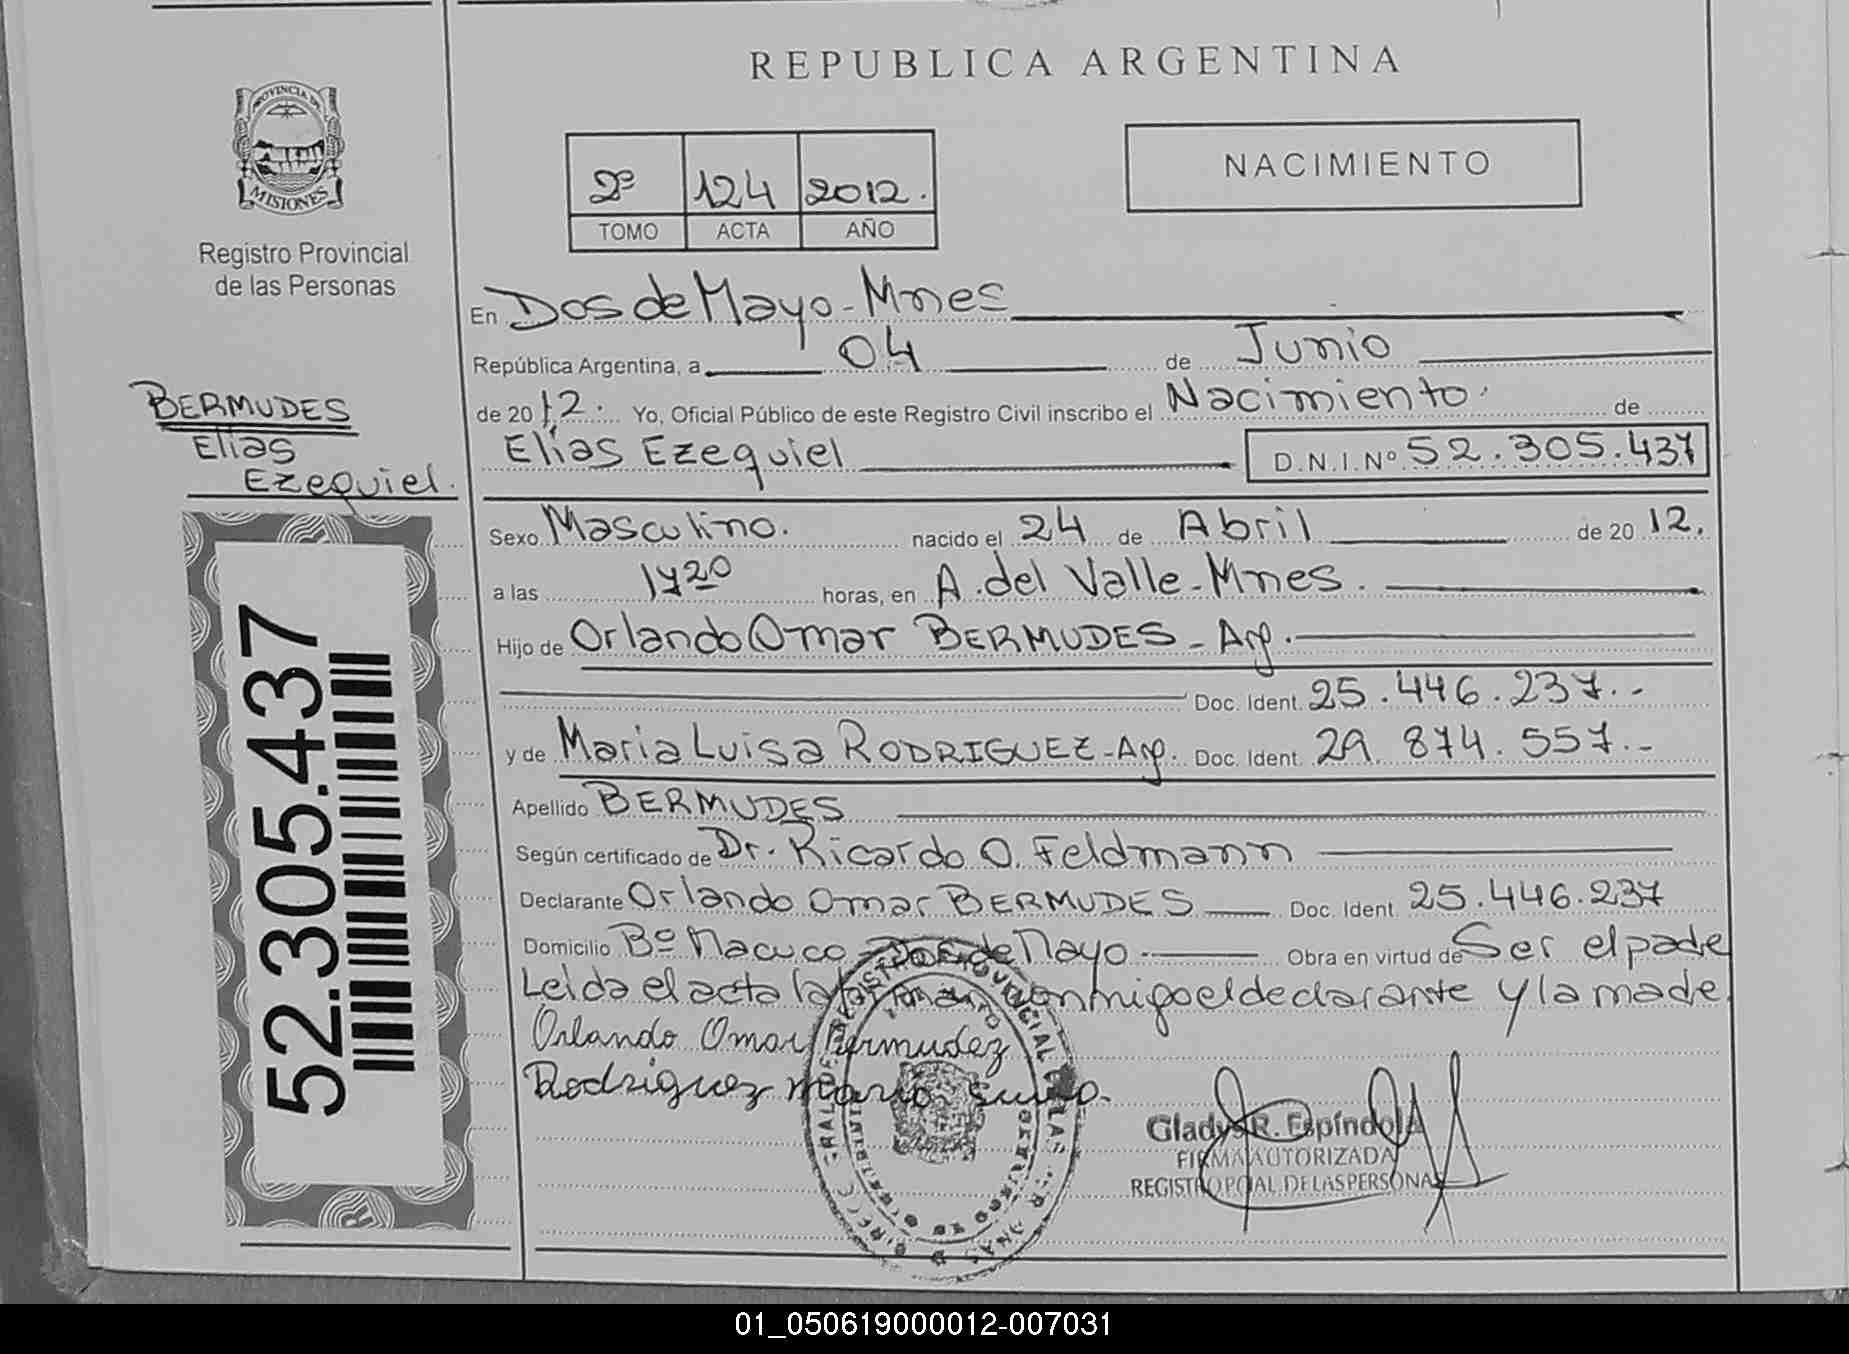 REPUBLICA ARGENTINA
PROVINCIA DE
MISIONES
Registro Provincial
de las Personas
2º 124 2012.
TOMO ACTA AÑO
NACIMIENTO
BERMUDES
Elias
Ezequiel.
52.305.437
En Dos de Mayo - Mnes
República Argentina, a 04 de Junio
de 2012. Yo, Oficial Público de este Registro Civil inscribo el Nacimiento de
Elias Ezequiel D.N.I.Nº 52.305.437
Sexo Masculino. nacido el 24 de Abril de 2012.
a las 1720 horas, en A. del Valle - Mnes.
Hijo de Orlando Omar BERMUDES - Arg.
Doc. Ident. 25.446.237.-
y de Maria Luisa RODRIGUEZ - Arg. Doc. Ident. 29.874.557.-
Apellido BERMUDES
Según certificado de Dr. Ricardo O. Feldmann
Declarante Orlando Omar BERMUDES Doc. Ident. 25.446.237
Domicilio Bº Macuco - Dos de Mayo Obra en virtud de Ser el padre
Leida el acta la firman conmigo el declarante y la madre
Orlando Omar Bermudez
Rodriguez Maria
Gladys R. Espíndola
FIRMA AUTORIZADA
REGISTRO PCIAL. DE LAS PERSONAS
01_050619000012-007031